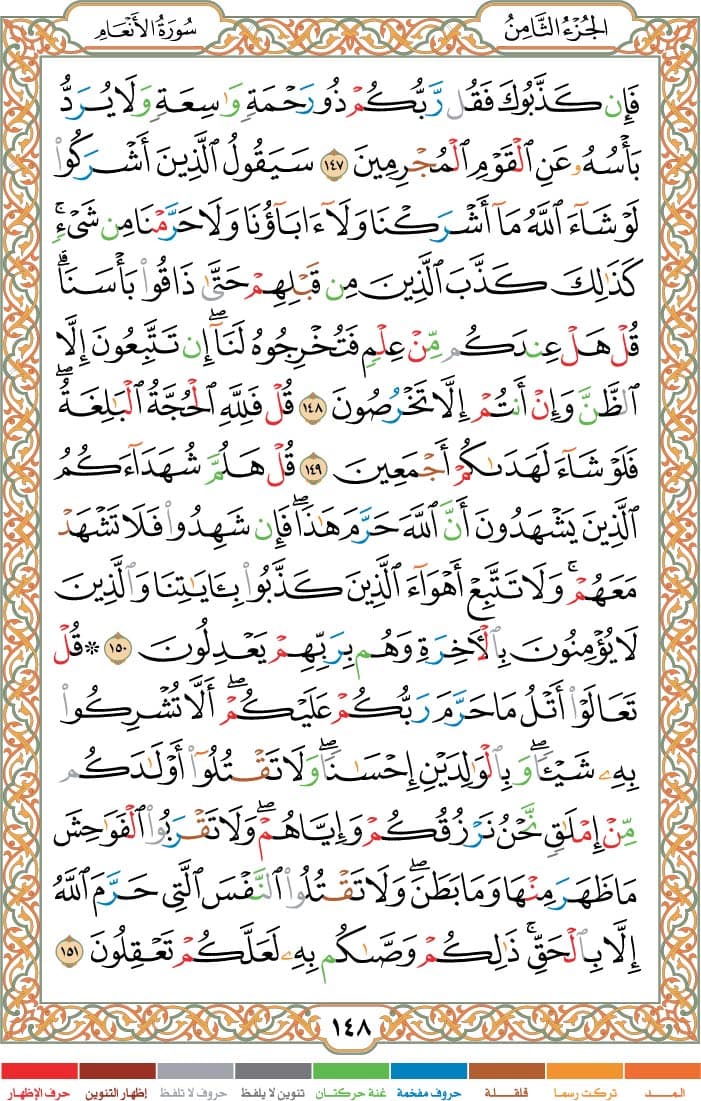 الجُزْءُ الثَّامِنُ
سُورَةُ الأَنْعَامِ
فَإِن كَذَّبُوكَ فَقُل رَّبُّكُمْ ذُو رَحْمَةٍ وَٰسِعَةٍ وَلَا يُرَدُّ
بَأْسُهُۥ عَنِ ٱلْقَوْمِ ٱلْمُجْرِمِينَ ١٤٧ سَيَقُولُ ٱلَّذِينَ أَشْرَكُوا۟
لَوْ شَآءَ ٱللَّهُ مَآ أَشْرَكْنَا وَلَآ ءَابَآؤُنَا وَلَا حَرَّمْنَا مِن شَىْءٍۚ
كَذَٰلِكَ كَذَّبَ ٱلَّذِينَ مِن قَبْلِهِمْ حَتَّىٰ ذَاقُوا۟ بَأْسَنَاۗ
قُلْ هَلْ عِندَكُم مِّنْ عِلْمٍ فَتُخْرِجُوهُ لَنَآۖ إِن تَتَّبِعُونَ إِلَّا
ٱلظَّنَّ وَإِنْ أَنتُمْ إِلَّا تَخْرُصُونَ ١٤٨ قُلْ فَلِلَّهِ ٱلْحُجَّةُ ٱلْبَٰلِغَةُۖ
فَلَوْ شَآءَ لَهَدَىٰكُمْ أَجْمَعِينَ ١٤٩ قُلْ هَلُمَّ شُهَدَآءَكُمُ
ٱلَّذِينَ يَشْهَدُونَ أَنَّ ٱللَّهَ حَرَّمَ هَٰذَاۖ فَإِن شَهِدُوا۟ فَلَا تَشْهَدْ
مَعَهُمْۚ وَلَا تَتَّبِعْ أَهْوَآءَ ٱلَّذِينَ كَذَّبُوا۟ بِـَٔايَٰتِنَا وَٱلَّذِينَ
لَا يُؤْمِنُونَ بِٱلْـَٔاخِرَةِ وَهُم بِرَبِّهِمْ يَعْدِلُونَ ١٥٠ ۞ قُلْ
تَعَالَوْا۟ أَتْلُ مَا حَرَّمَ رَبُّكُمْ عَلَيْكُمْۖ أَلَّا تُشْرِكُوا۟
بِهِۦ شَيْـًٔاۖ وَبِٱلْوَٰلِدَيْنِ إِحْسَٰنًاۖ وَلَا تَقْتُلُوٓا۟ أَوْلَٰدَكُم
مِّنْ إِمْلَٰقٍۖ نَّحْنُ نَرْزُقُكُمْ وَإِيَّاهُمْۖ وَلَا تَقْرَبُوا۟ ٱلْفَوَٰحِشَ
مَا ظَهَرَ مِنْهَا وَمَا بَطَنَۖ وَلَا تَقْتُلُوا۟ ٱلنَّفْسَ ٱلَّتِى حَرَّمَ ٱللَّهُ
إِلَّا بِٱلْحَقِّۚ ذَٰلِكُمْ وَصَّىٰكُم بِهِۦ لَعَلَّكُمْ تَعْقِلُونَ ١٥١
١٤٨
المـــد تركت رسما قلقلة حروف مفخمة غنة حركتان تنوين لا يلفظ حروف لا تلفظ إظهار التنوين حرف الإظهار